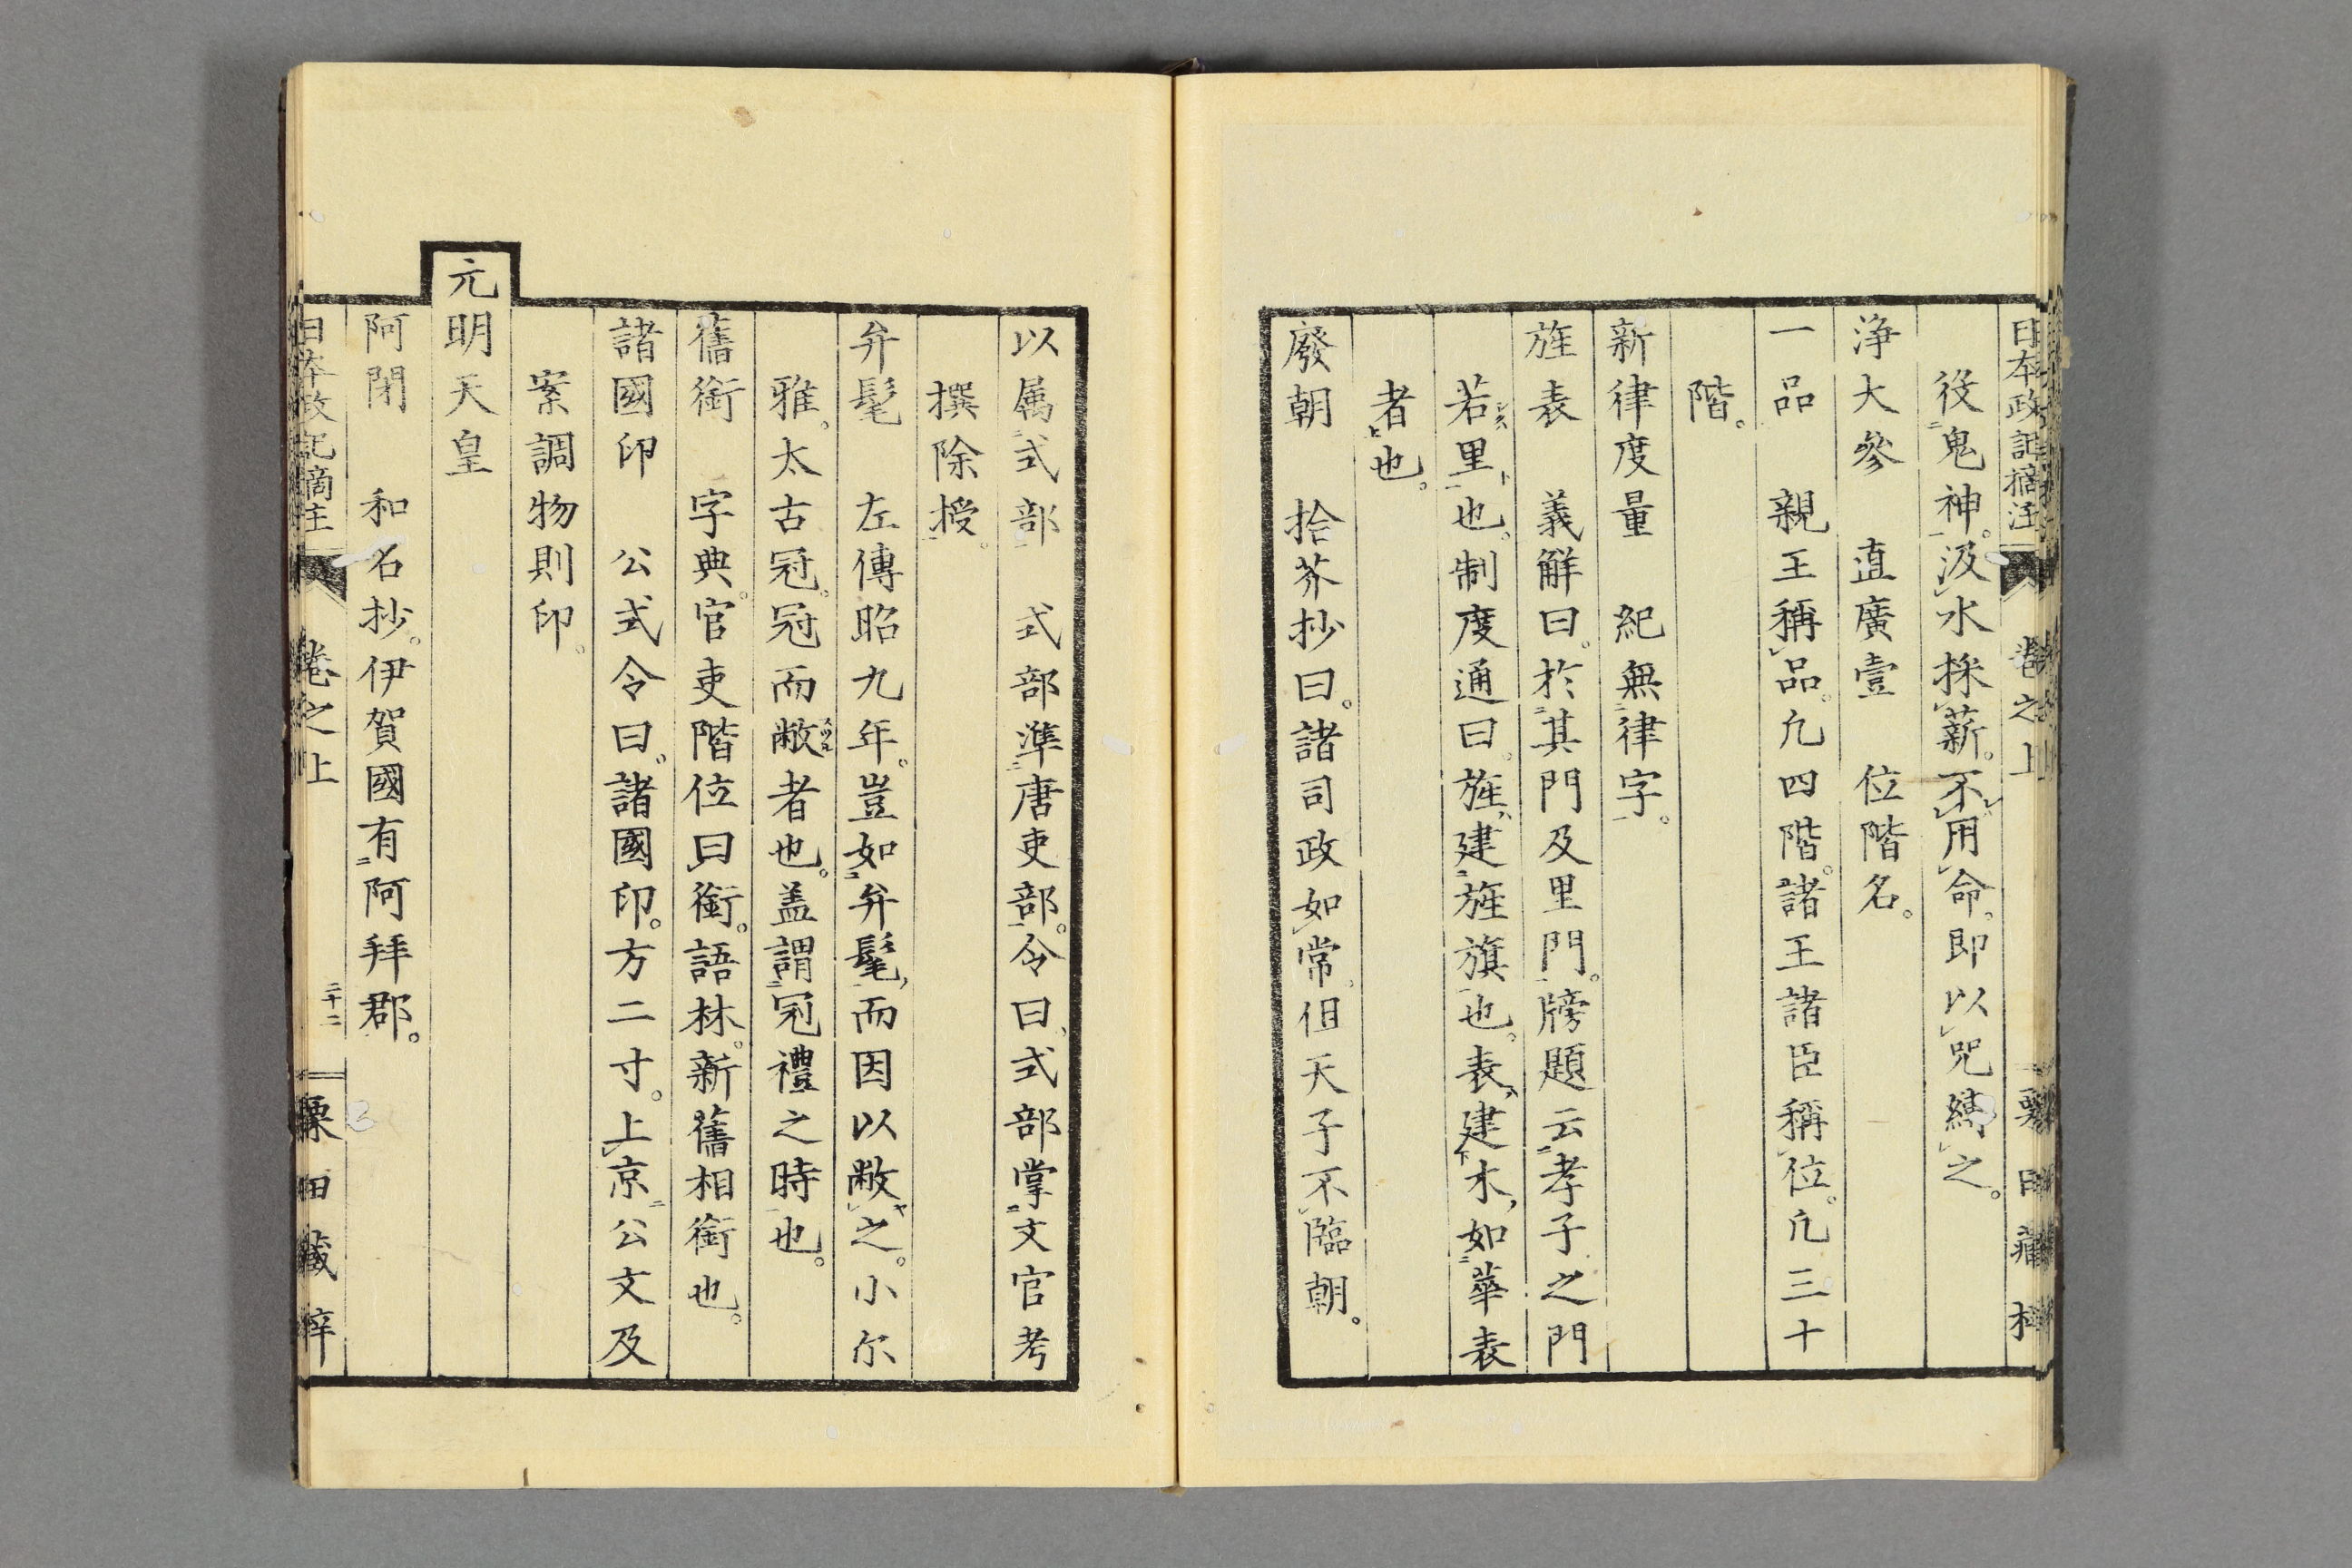 日本政記摘注 卷之上
役鬼神。汲水採薪。不用命。即以咒縛之。
浄大參 直廣壹 位階名。
一品 親王稱品。凢四階。諸王諸臣稱位。凢三十
階。
新律度量 紀無律字。
旌表 義解曰。於其門及里門。牓題云孝子之門
若里也。制度通曰。旌、建旌旗也。表、建木、如華表
者也。
廢朝 拾芥抄曰。諸司政如常。但天子不臨朝。
以属式部 式部準唐吏部。令曰、式部掌文官考
撰除授。
弁髦 左傳昭九年。豈如弁髦、而因以敝之。小尔
雅。太古冠。冠而敝者也。盖謂冠禮之時也。
舊銜 字典。官吏階位曰銜。語林。新舊相銜也。
諸國印 公式令曰。諸國印。方二寸。上京公文及
案調物則印。
元明天皇
阿閉 和名抄。伊賀國有阿拜郡。
日本政記摘注 卷之上 二十二 栗田藏梓